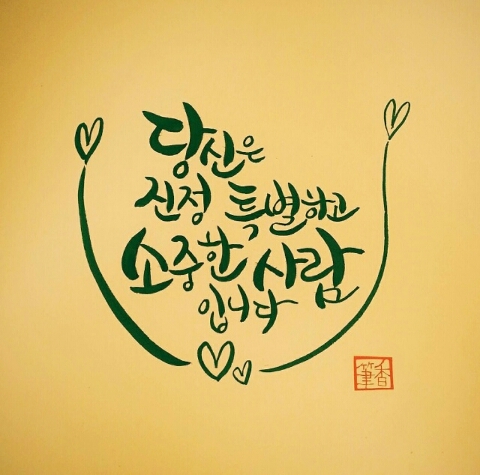 당신은
진정 특별하고
소중한 사람
입니다
筆香